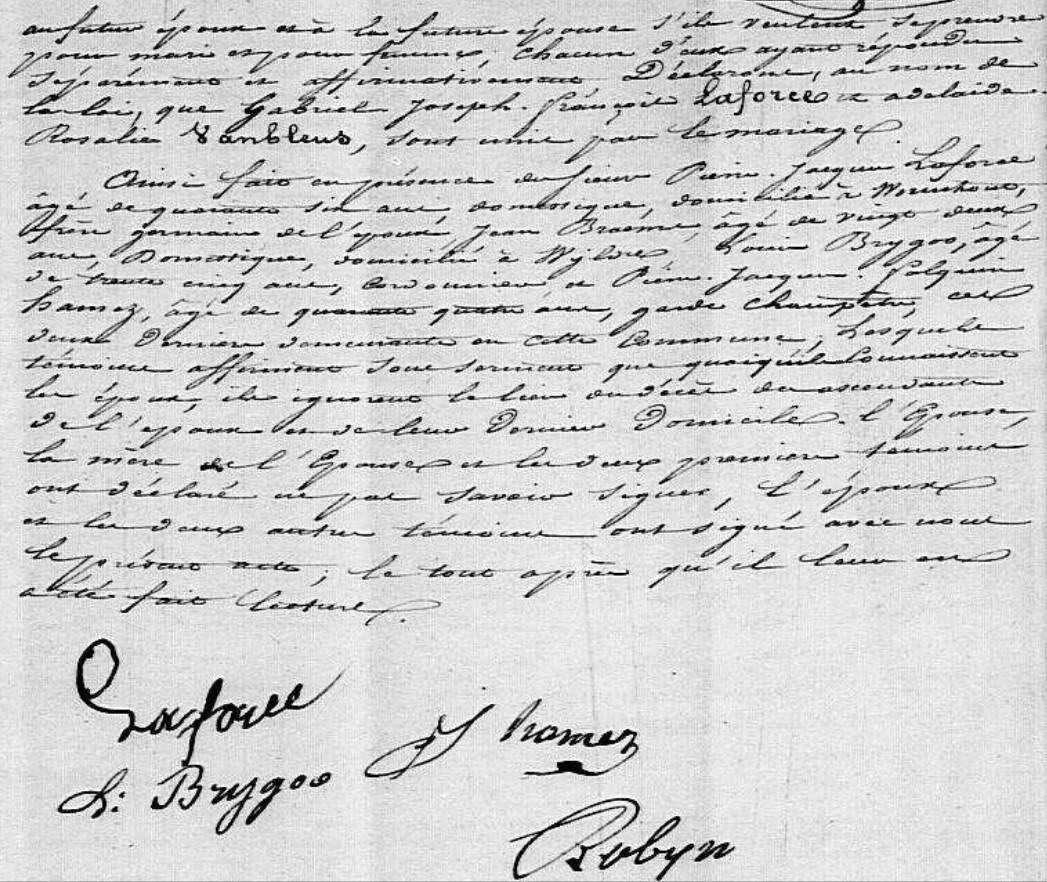 au futur époux et à la future épouse s'ils veulent se prendre
pour mari et pour femme, chacun d'eux ayant répondu
séparément et affirmativement Déclarons, au nom de
la loi, que Gabriel Joseph François Laforce et adelaïde
Rosalie Vanbleus, sont unis par le mariage.
Ainsi fait en présence du sieurs Pierre Jacques Laforce
âgé de quarante six ans, domestique, domicilié à Wormhout,
frère germain de l'époux, Jean Braëms, âgé de vingt deux
ans, Domestique, domicilié à Wylder, Louis Brygoo, âgé
de trente cinq ans, Cordonnier et Pierre Jacques Folquin
hamez, âgé de quarante quatre ans, garde champêtre, ces
deux Derniers demeurants en cette Commune, Lesquels
témoins affirment sous serment que quoiqu'ils connaissent
les époux, ils ignorent le lieu du décès des ascendants
de l'époux et de leur Dernier Domicile. l'Epouse,
la mère de l'Epouse et les deux premiers témoins
ont déclaré ne pas savoir signer, l'époux
et les deux autres témoins ont signé avec nous
le présent acte, le tout après qu'il leur en
a été fait lecture.
Laforce
hamez
L: Brygoo
Robyn